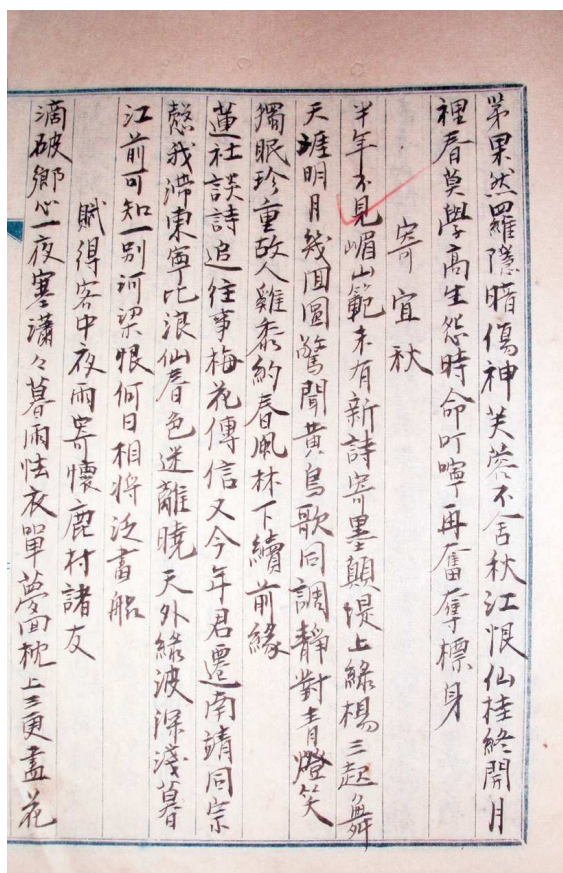 第果然羅隱暗傷神芙蓉不舍秋江恨仙桂終開月
裡春莫學高生怨時命叮嚀再奮奪標身
寄宜秋
半年不見嵋山範未有新詩寄墨顛堤上綠楊三起舞
天涯明月幾回圓驚聞黃鳥歌同調靜對青燈笑
獨眠珍重故人雞黍約春風林下續前緣
蓮社談詩追往事梅花傳信又今年君遷南靖同宗
愨我滯東寧比浪仙春色迷離曉天外綠波深淺暮
江前可知一別河梁恨何日相將泛書船
賦得客中夜雨寄懷鹿村諸友
滴破鄉心一夜寒瀟々暮雨怯衣單夢回枕上三更盡花